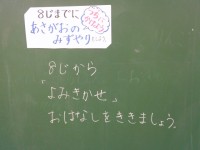 8じまでに
あさがおの
みずやり
8じから
「よみきかせ」
おはなしをききましょう。